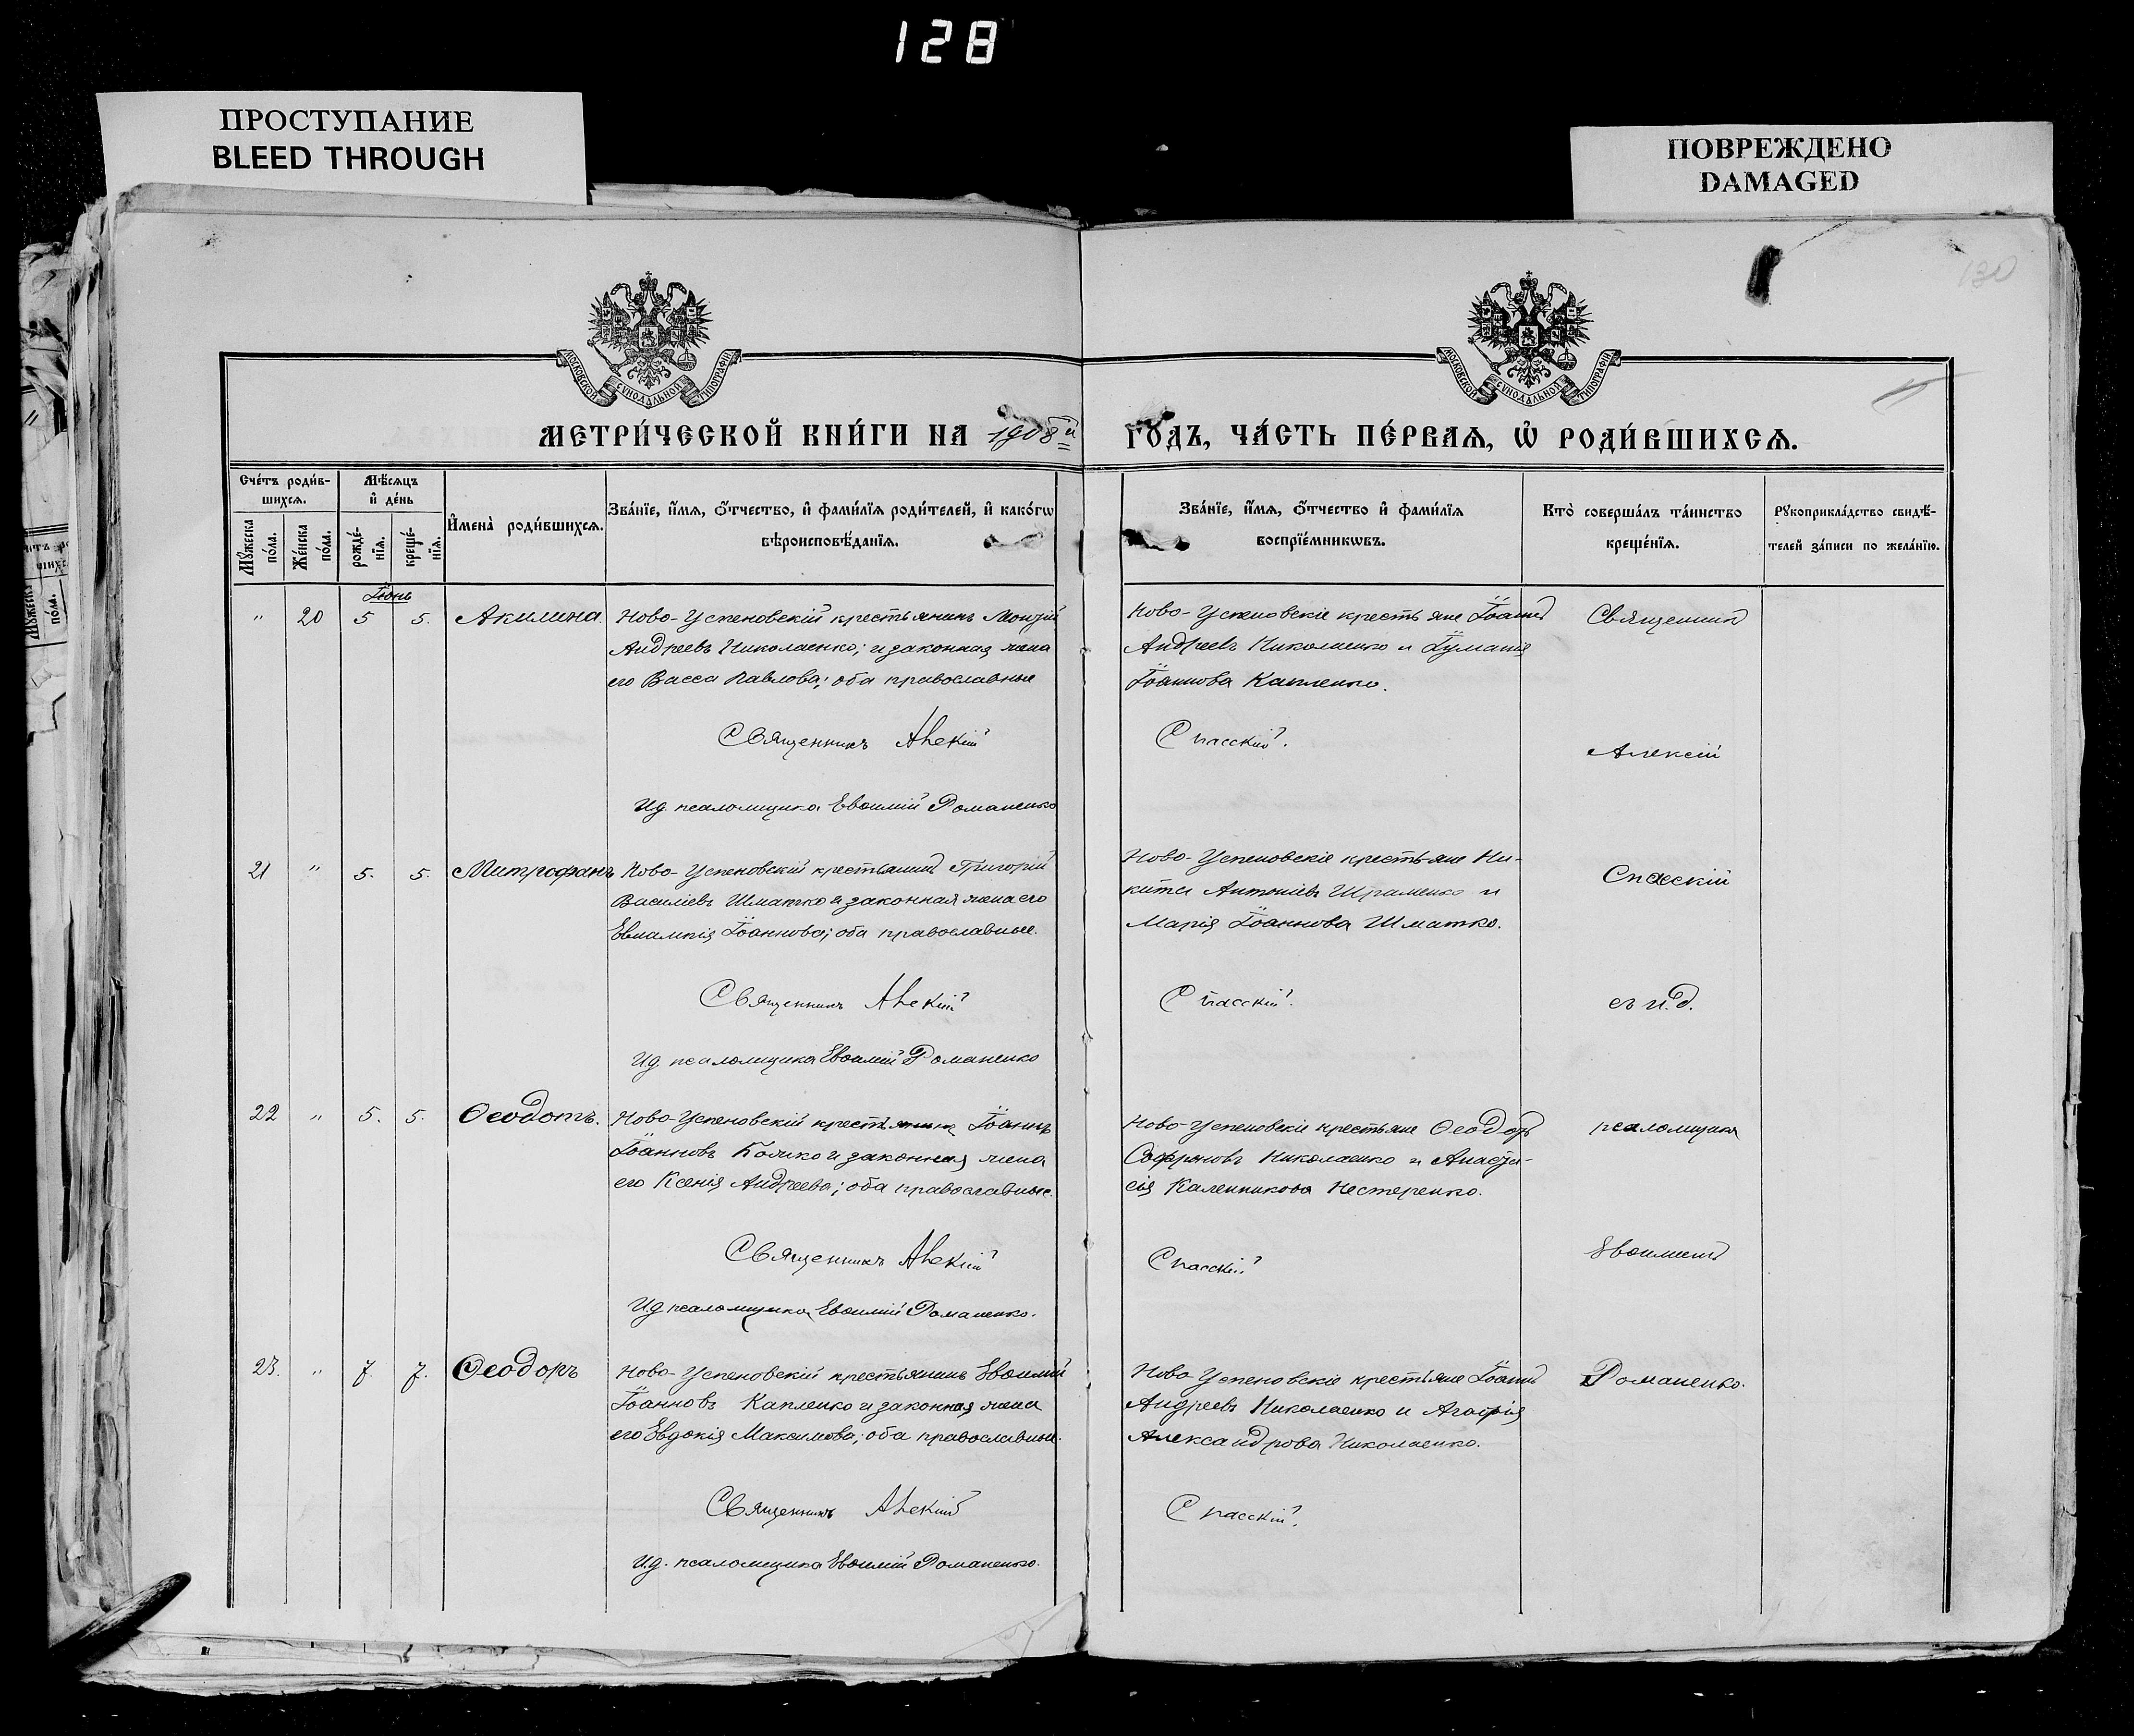 128
ПРОСТУПАНИЕ
BLEED THROUGH
ПОВРЕЖДЕНО
DAMAGED
130
МОСКОВСКОЙ СѴНОДАЛЬНОЙ ТИПОГРАФІИ
МОСКОВСКОЙ СѴНОДАЛЬНОЙ ТИПОГРАФІИ
МЕТРИ́ЧЕСКОЙ КНИ́ГИ НА 1908й ГО́ДЪ, ЧА́СТЬ ПЕ́РВАѦ, Ѡ҆ РОДИ́ВШИХСѦ.
Сче́тъ роди́в-
шихсѧ.
Мꙋ́жеска по́ла.
Же́нска по́ла.
Мѣ́сѧцъ
и҆ де́нь
рожде́-
нїѧ.
креще́-
нїѧ.
И҆мена̀ роди́вшихсѧ.
Зва́нїе, и҆́мѧ, ѻ҆́тчество, и҆ фами́лїѧ роди́телей, и҆ како́гѡ
вѣроисповѣ́данїѧ.
Зва́нїе, и҆́мѧ, ѻ҆́тчество и҆ фами́лїѧ
воспрїе́мникѡвъ.
Кто̀ соверша́лъ та́инство
креще́нїѧ.
Рꙋкоприкла́дство свидѣ́-
телей за́писи по жела́нїю.
Іюнь
" 20 5 5. Акилина.
Ново-Успеновскій крестьянинъ
Андреевъ Николаенко; и законная жена
его Васса Павлова; оба православные
Священникъ Алексій
И.д. псаломщика Евѳимій Романенко
Ново-Успеновскіе крестьяне Іоаннъ
Андреевъ Николаенко и Іуліанія
Іоаннова Капленко.
Спасскій.
Священникъ
Алексій
21 " 5. 5. Митрофанъ
Ново-Успеновскій крестьянинъ Григорій
Василіевъ Шматко и законная жена его
Евлампія Іоаннова; оба православные.
Священникъ Алексій
И.д. псаломщика Евѳимій Романенко
Ново-Успеновскіе крестьяне Ни-
кита Антоніевъ Шраменко и
Марія Іоаннова Шматко.
Спасскій.
Спасскій
съ и.д.
22 " 5. 5. Ѳеодотъ.
Ново-Успеновскій крестьянинъ Іоаннъ
Іоанновъ и законная жена
его Ксенія Андреева; оба православные.
Священникъ Алексій
И.д. псаломщика Евѳимій Романенко.
Ново-Успеновскіе крестьяне Ѳеодоръ
Софроновъ Николаенко и Анаста-
сія Калинникова Нестеренко.
Спасскій
псаломщика
Евѳиміемъ
23. " 7 7. Ѳеодоръ
Ново-Успеновскій крестьянинъ Евѳимій
Іоанновъ Капленко и законная жена
его Евдокія Максимова; оба православные.
Священникъ Алексій
И.д. псаломщика Евѳимій Романенко.
Ново Успеновскіе крестьяне Іоаннъ
Андреевъ Николаенко и Агафія
Александрова Николаенко.
Спасскій.
Романенко.